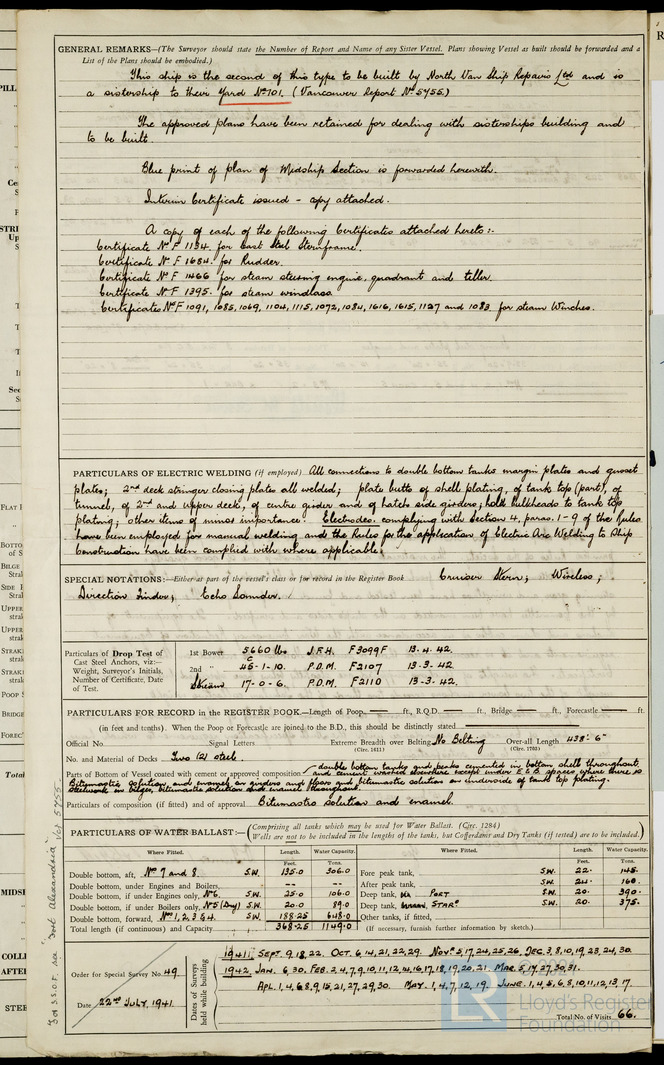 GENERAL REMARKS—(The Surveyor should state the Number of Report and Name of any Sister Vessel. Plans showing Vessel as built should be forwarded and a
List of the Plans should be embodied.)
This ship is the second of this type to be built by North Van Ship Repairs Ltd and is
a sistership to their Yard No 701. (Vancouver Report No 5755.)
The approved plans have been retained for dealing with sisterships building and
to be built.
Blue print of plan of Midship Section is forwarded herewith.
Interim Certificate issued - copy attached.
A copy of each of the following Certificates attached hereto:-
Certificate No F 1134. for Cast Steel Sternframe.
Certificate No F 1684. for Rudder.
Certificate No F 1466 for steam steering engine, quadrant and tiller.
Certificate No F 1395. for steam windlass
Certificates No F 1091, 1085, 1069, 1104, 1115, 1072, 1084, 1616, 1615, 1127 and 1083 for steam Winches.
PARTICULARS OF ELECTRIC WELDING (if employed) All connections to double bottom tanks margin plates and gusset
plates; 2nd deck stringer closing plates all welded; plate butts of shell plating, of tank top (part), of
tunnel, of 2nd and upper deck, of centre girder and of hatch side girders; hold bulkheads to tank top
plating; other items of minor importance. Electrodes complying with Section 4, paras. 1-9 of the Rules
have been employed for manual welding and the Rules for the application of Electric Arc Welding to Ship
Construction have been complied with where applicable.
SPECIAL NOTATIONS:—Either as part of the vessel's class or for record in the Register Book Cruiser Stern; Wireless;
Direction Finder; Echo Sounder.
Particulars of Drop Test of
Cast Steel Anchors, viz:—
Weight, Surveyor's Initials,
Number of Certificate, Date
of Test.
1st Bower 5660 lbs J.F.H. F3099F 13-4-42.
2nd " 45-1-10. P.D.M. F2107 13-3-42
Stream 17-0-6. P.D.M. F2110 13-3-42.
PARTICULARS FOR RECORD in the REGISTER BOOK.—Length of Poop — ft., R.Q.D. — ft., Bridge — ft., Forecastle — ft.
(in feet and tenths). When the Poop or Forecastle are joined to the B.D., this should be distinctly stated
Official No. Signal Letters Extreme Breadth over Belting No Belting Over-all Length 438'-6"
(Circ. 1611) (Circ. 1703)
No. and Material of Decks Two (2) steel.
Parts of Bottom of Vessel coated with cement or approved composition double bottom tanks and peaks cemented in bottom shell throughout
and cement washed elsewhere except under E & B spaces where there is
Bitumastic solution and enamel on girders and floors and bitumastic solution on underside of tank top plating.
Particulars of composition (if fitted) and of approval Bitumastic solution and enamel.
PARTICULARS OF WATER BALLAST:— (Comprising all tanks which may be used for Water Ballast. (Circ. 1284)
Wells are not to be included in the lengths of the tanks, but Cofferdams and Dry Tanks (if tested) are to be included.)
Where Fitted. Length. Water Capacity. Where Fitted. Length. Water Capacity.
Feet. Tons. Feet. Tons.
Double bottom, aft, Nos 7 and 8. S.W. 135.0 306.0 Fore peak tank, S.W. 22. 145.
Double bottom, under Engines and Boilers, -- -- After peak tank, S.W. 24. 160.
Double bottom, if under Engines only, No 6. S.W. 25.0 106.0 Deep tank, PORT S.W. 20. 390.
Double bottom, if under Boilers only, No 5 (Dry) S.W. 20.0 89.0 Deep tank, STARD S.W. 20. 375.
Double bottom, forward, Nos 1, 2, 3 & 4. S.W. 188.25 648.0 Other tanks, if fitted,
Total length (if continuous) and Capacity 368.25 1149.0 (If necessary, furnish further information by sketch.)
Order for Special Survey No. 49
Date 22nd July, 1941.
Dates of Surveys held while building
1941, SEPT. 9, 18, 22. OCT. 6, 14, 21, 22, 29. NOV. 5, 17, 24, 25, 26. DEC. 3, 8, 10, 19, 23, 24, 30.
1942, JAN. 6, 30. FEB. 2, 4, 7, 9, 10, 11, 12, 14, 16, 17, 18, 19, 20, 21. MAR. 5, 17, 27, 30, 31.
APL. 1, 4, 6, 8, 9, 15, 21, 27, 29, 30. MAY. 1, 4, 7, 12, 19. JUNE. 1, 4, 5, 6, 8, 10, 11, 12, 13, 17.
Total No. of Visits 66.
Lloyd's Register
Foundation